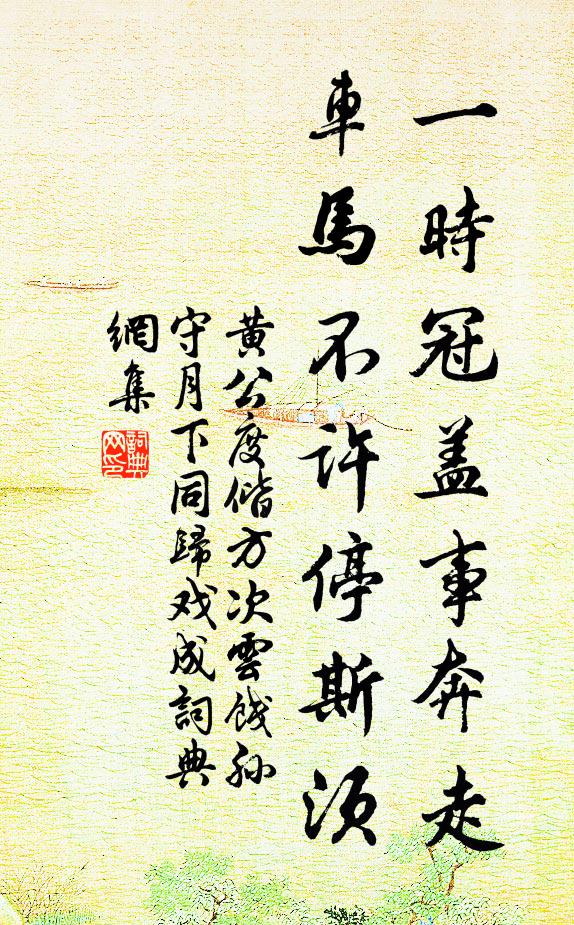 一時冠盖事奔走
車馬不許停斯須
黄公度偕方次雲餞孙
守月下同歸戏成詞典
網集
詞典
网印